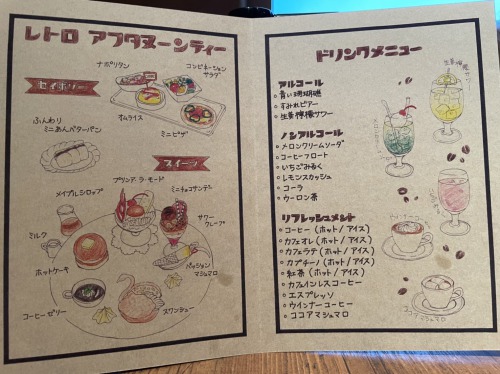 レトロ アフタヌーンティー
ナポリタン
コンビネーション
サラダ
セイボリー
オムライス
ミニピザ
ふんわり
ミニあんバターパン
スイーツ
プリンアラモード
ミニチョコサンデー
メイプルシロップ
サワー
クレープ
ミルク
ホットケーキ
パッション
マシュマロ
コーヒーゼリー
スワンシュー
ドリンクメニュー
アルコール
青い珊瑚礁
すみれビアー
生姜檸檬サワー
ノンアルコール
メロンクリームソーダ
コーヒーフロート
いちごみるく
レモンスカッシュ
コーラ
ウーロン茶
リフレッシュメント
コーヒー (ホット/アイス)
カフェオレ (ホット/アイス)
カフェラテ (ホット/アイス)
カプチーノ (ホット/アイス)
紅茶 (ホット/アイス)
カフェインレスコーヒー
エスプレッソ
ウインナーコーヒー
ココアマシュマロ